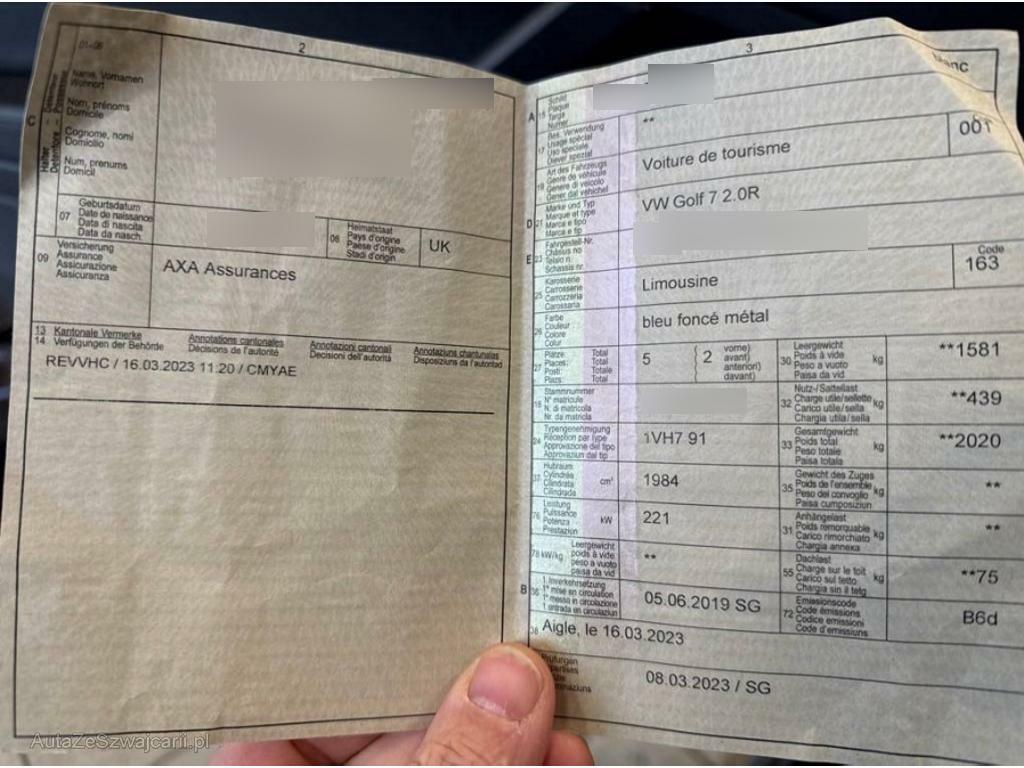 01-06
2
C
Halter
Name, Vornamen
Wohnort
Nom, prénoms
Domicile
Cognome, nomi
Domicilio
Num, prenums
Domicil
07
Geburtsdatum
Date de naissance
Data di nascita
Data da nasch.
06
Heimatstaat
Pays d'origine
Paese d'origine
Stadi d'origin
UK
09
Versicherung
Assurance
Assicurazione
Assicuranza
AXA Assurances
13 Kantonale Vermerke
14 Verfügungen der Behörde
Annotations cantonales
Décisions de l'autorité
Annotazioni cantonali
Decisioni dell'autorità
Annotaziuns chantunalas
Disposiziuns da l'autoritad
REVVHC / 16.03.2023 11.20 / CMYAE
3
A 15
Schild
Plaque
Targa
Numer
blanc
17
Bes. Verwendung
Usage spécial
Uso speciale
Diever spezial
**
19
Art des Fahrzeugs
Genre de véhicule
Genere di veicolo
Gener dal vehichel
Voiture de tourisme
001
D 21
Marke und Typ
Marque et type
Marca e tipo
Marca e tip
VW Golf 7 2.0R
E 23
Fahrgestell-Nr.
Châssis no
Telaio n.
Schassis nr.
25
Karosserie
Carrosserie
Carrozzeria
Carossaria
Limousine
Code
163
26
Farbe
Couleur
Colore
Colur
bleu foncé métal
27
Plätze: Total
Places: Total
Posti: Totale
Plazs: Total
5
2
vorne)
avant)
anteriori)
davant)
30
Leergewicht
Poids à vide
Peso a vuoto
Paisa da vid
kg
**1581
18
Stammnummer
N° matricule
N. di matricola
Nr. da matricla
32
Nutz-/Sattellast
Charge utile/sellette
Carico utile/sella
Chargia utila/sella
kg
**439
24
Typengenehmigung
Réception par type
Approvazione del tipo
Approvaziun dal tip
1VH7 91
33
Gesamtgewicht
Poids total
Peso totale
Paisa totala
kg
**2020
37
Hubraum
Cylindrée
Cilindrata
Cilindrada
cm³
1984
35
Gewicht des Zuges
Poids de l'ensemble
Peso del convoglio
Paisa cumposiziun
kg
**
76
Leistung
Puissance
Potenza
Prestaziun
kW
221
31
Anhängelast
Poids remorquable
Carico rimorchiato
Chargia annexa
kg
**
78 kW/kg
Leergewicht
poids à vide
peso a vuoto
paisa da vid
**
55
Dachlast
Charge sur le toit
Carico sul tetto
Chargia sin il tetg
kg
**75
B 36
1. Inverkehrsetzung
1re mise en circulation
1a messa in circolazione
1. entrada en circulaziun
05.06.2019 SG
72
Emissionscode
Code émissions
Codice emissioni
Code d'emissiuns
B6d
38
Aigle, le 16.03.2023
Prüfungen
08.03.2023 / SG
AutaZeSzwajcarii.pl